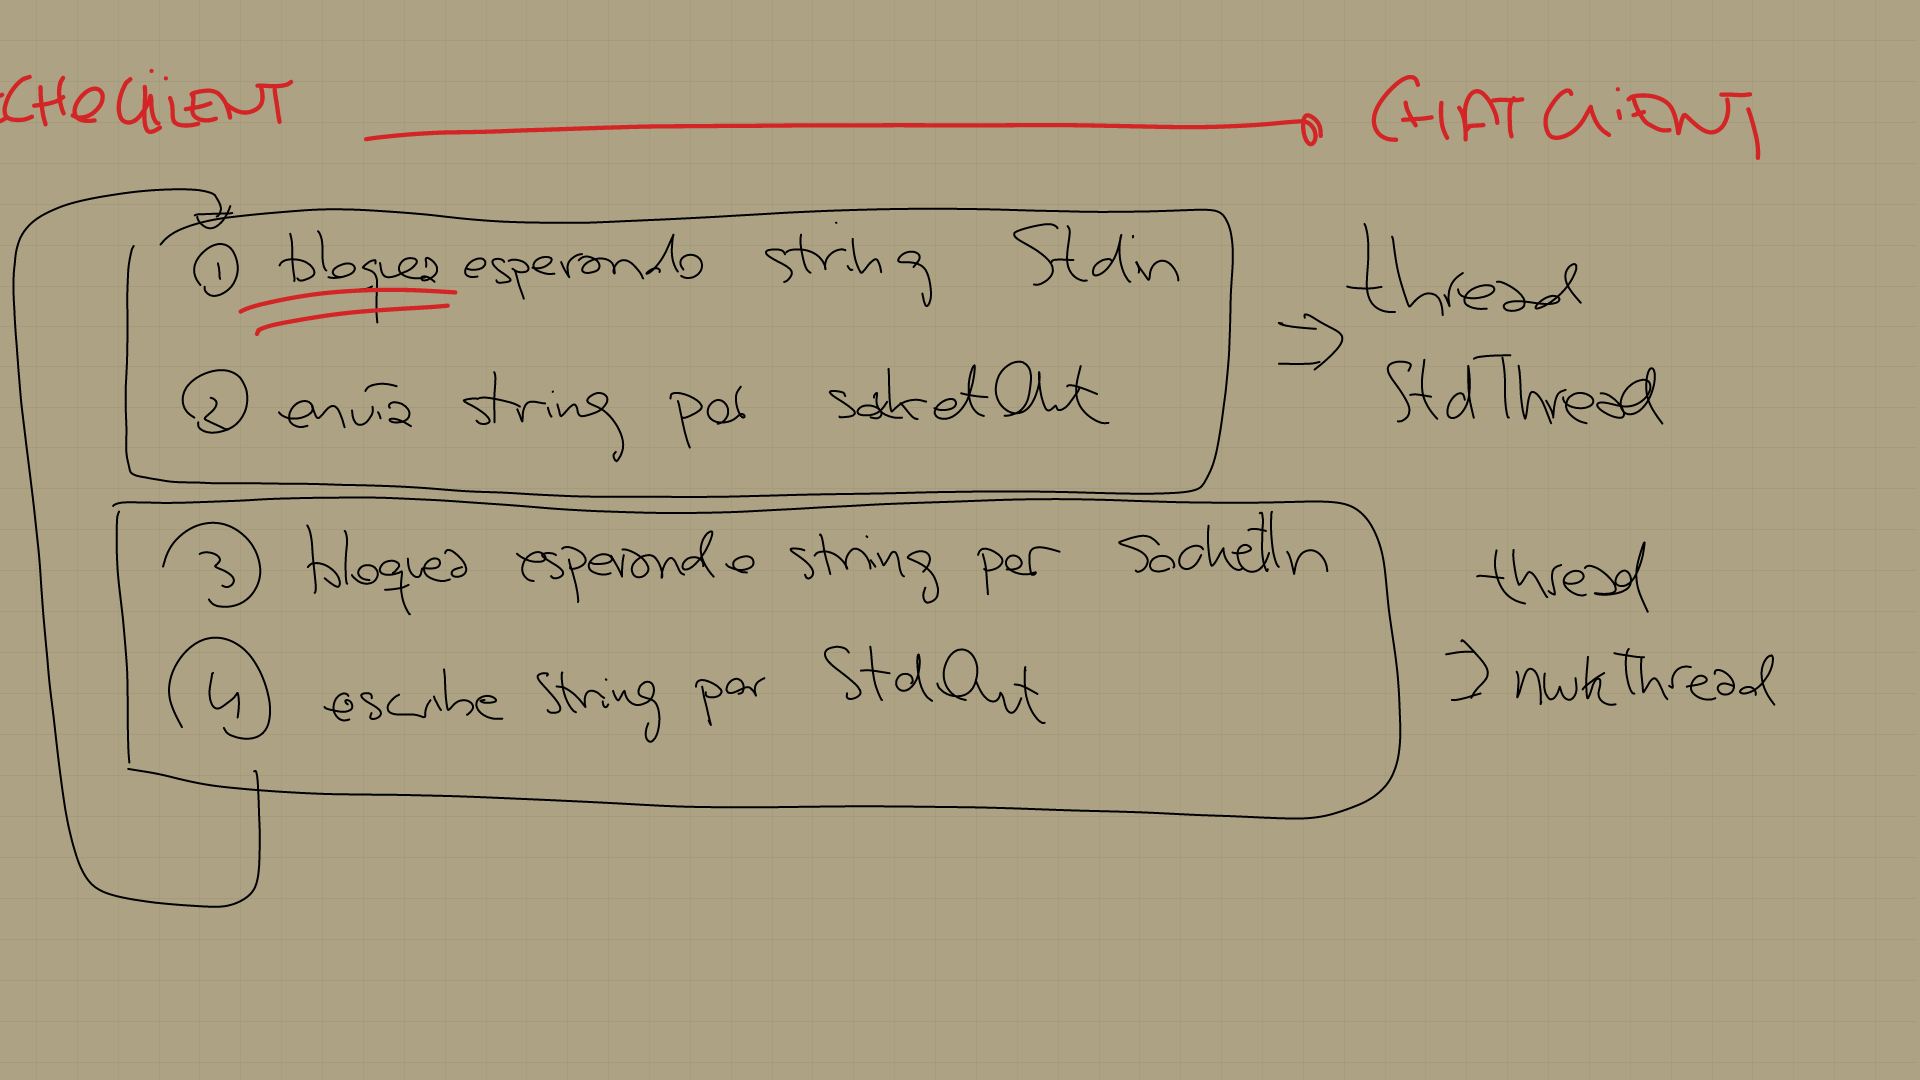 CHOCLIENT CHATCLIENT
1 bloquea esperando string Stdin
thread
2 envía string por socketOut
StdThread
3 bloquea esperando string por SocketIn
thread
4 escribe string por StdOut
nwkThread